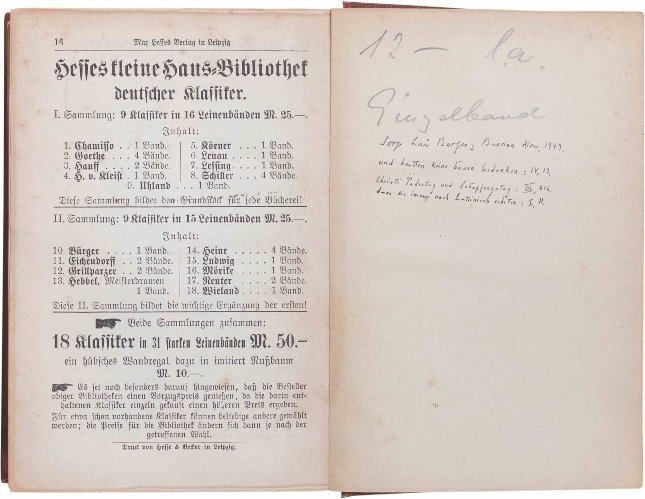 16 Max Hesses Verlag in Leipzig
Hesses kleine Haus-Bibliothek
deutscher Klassiker.
I. Sammlung: 9 Klassiker in 16 Leinenbänden M. 25.—.
Inhalt:
1. Chamisso . . 1 Band.
2. Goethe . . . 4 Bände.
3. Hauff . . . . 2 Bände.
4. H. v. Kleist . 1 Band.
5. Körner . . . 1 Band.
6. Lenau . . . . 1 Band.
7. Lessing . . . 1 Band.
8. Schiller . . . 4 Bände.
9. Uhland . . . 1 Band.
Diese Sammlung bildet den Grundstock für jede Bücherei!
II. Sammlung: 9 Klassiker in 15 Leinenbänden M. 25.—.
Inhalt:
10. Bürger . . . . 1 Band.
11. Eichendorff . . 2 Bände.
12. Grillparzer . . 2 Bände.
13. Hebbel, Meisterdramen
1 Band.
14. Heine . . . . . 4 Bände.
15. Ludwig . . . . 1 Band.
16. Mörike . . . . 1 Band.
17. Reuter . . . . 2 Bände.
18. Wieland . . . . 1 Band.
Diese II. Sammlung bildet die wichtige Ergänzung der ersten!
Beide Sammlungen zusammen:
18 Klassiker in 31 starken Leinenbänden M. 50.—
ein hübsches Wandregal dazu in imitiert Nußbaum
M. 10.—.
Es sei noch besonders darauf hingewiesen, daß die Besteller
obiger Bibliotheken einen Vorzugspreis genießen, da die darin ent-
haltenen Klassiker einzeln gekauft einen höheren Preis ergeben.
Für etwa schon vorhandene Klassiker können beliebige andere gewählt
werden; die Preise für die Bibliothek ändern sich dann je nach der
getroffenen Wahl.
Druck von Hesse & Becker in Leipzig.
12 — l.a.
Einzelband
Jorge Luis Borges, Buenos Aires, 1979.
und hatten keine bösen Gedanken : IV, 13.
Christi Todestag und : III, 416.
immer nach Lateinisch : I, 11.